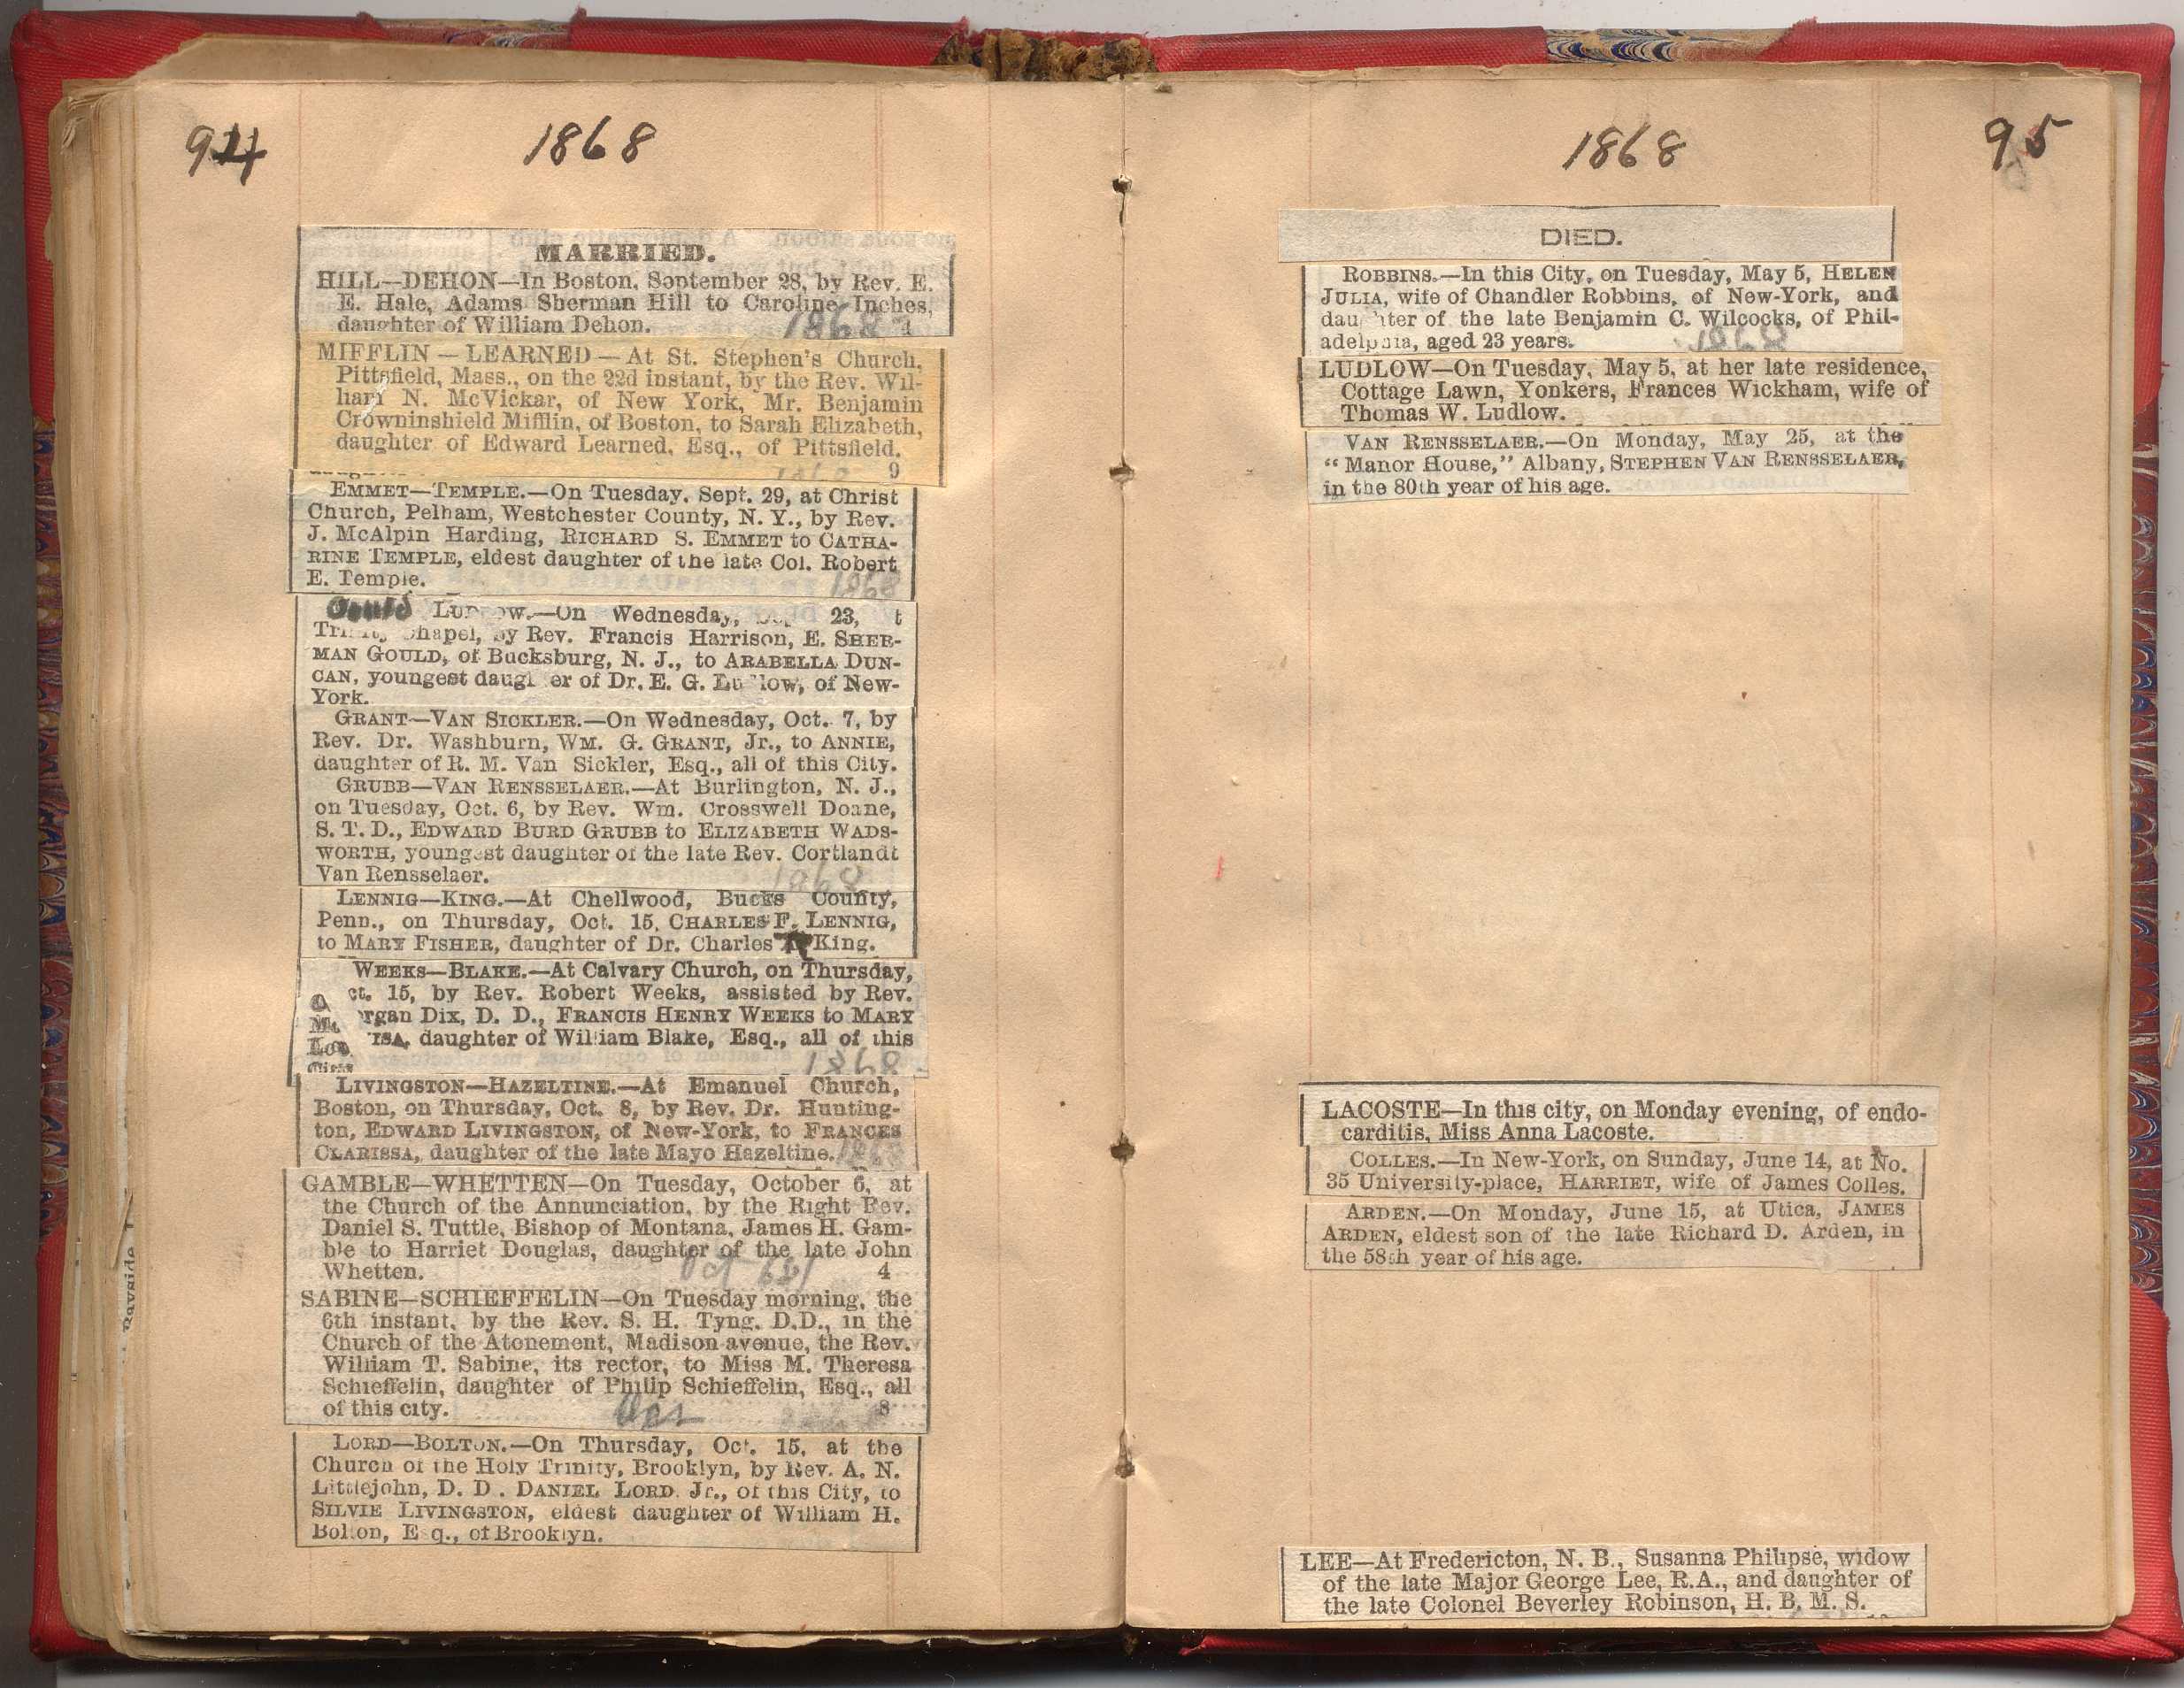 94
1868
MARRIED.
HILL—DEHON—In Boston, September 28, by Rev. E.
E. Hale, Adams Sherman Hill to Caroline Inches,
daughter of William Dehon.
1868
MIFFLIN — LEARNED — At St. Stephen's Church,
Pittsfield, Mass., on the 22d instant, by the Rev. Wil-
liam N. McVickar, of New York, Mr. Benjamin
Crowninshield Mifflin, of Boston, to Sarah Elizabeth,
daughter of Edward Learned, Esq., of Pittsfield.
1868 9
EMMET—TEMPLE.—On Tuesday, Sept. 29, at Christ
Church, Pelham, Westchester County, N. Y., by Rev.
J. McAlpin Harding, RICHARD S. EMMET to CATHA-
RINE TEMPLE, eldest daughter of the late Col. Robert
E. Temple.
1868
Gould LUDLOW.—On Wednesday, 23, t
Trinity Chapel, by Rev. Francis Harrison, E. SHER-
MAN GOULD, of Bucksburg, N. J., to ARABELLA DUN-
CAN, youngest daughter of Dr. E. G. Ludlow, of New-
York.
GRANT—VAN SICKLER.—On Wednesday, Oct. 7, by
Rev. Dr. Washburn, WM. G. GRANT, Jr., to ANNIE,
daughter of R. M. Van Sickler, Esq., all of this City.
GRUBB—VAN RENSSELAER.—At Burlington, N. J.,
on Tuesday, Oct. 6, by Rev. Wm. Crosswell Doane,
S. T. D., EDWARD BURD GRUBB to ELIZABETH WADS-
WORTH, youngest daughter of the late Rev. Cortlandt
Van Rensselaer.
1868
LENNIG—KING.—At Chellwood, Bucks County,
Penn., on Thursday, Oct. 15, CHARLES F. LENNIG,
to MARY FISHER, daughter of Dr. Charles R King.
WEEKS—BLAKE.—At Calvary Church, on Thursday,
Oct. 15, by Rev. Robert Weeks, assisted by Rev.
Morgan Dix, D. D., FRANCIS HENRY WEEKS to MARY
LOUISA, daughter of William Blake, Esq., all of this
City.
1868
LIVINGSTON—HAZELTINE.—At Emanuel Church,
Boston, on Thursday, Oct. 8, by Rev. Dr. Hunting-
ton, EDWARD LIVINGSTON, of New-York, to FRANCES
CLARISSA, daughter of the late Mayo Hazeltine.
1868
GAMBLE—WHETTEN—On Tuesday, October 6, at
the Church of the Annunciation, by the Right Rev.
Daniel S. Tuttle, Bishop of Montana, James H. Gam-
ble to Harriet Douglas, daughter of the late John
Whetten. Oct 4
SABINE—SCHIEFFELIN—On Tuesday morning, the
6th instant, by the Rev. S. H. Tyng, D.D., in the
Church of the Atonement, Madison avenue, the Rev.
William T. Sabine, its rector, to Miss M. Theresa
Schieffelin, daughter of Philip Schieffelin, Esq., all
of this city. 8
LORD—BOLTON.—On Thursday, Oct. 15, at the
Church of the Holy Trinity, Brooklyn, by Rev. A. N.
Littlejohn, D. D. DANIEL LORD, Jr., of this City, to
SILVIE LIVINGSTON, eldest daughter of William H.
Bolton, Esq., of Brooklyn.
1868
95
DIED.
ROBBINS.—In this City, on Tuesday, May 5, HELEN
JULIA, wife of Chandler Robbins, of New-York, and
daughter of the late Benjamin C. Wilcocks, of Phil-
adelphia, aged 23 years.
1868
LUDLOW—On Tuesday, May 5, at her late residence,
Cottage Lawn, Yonkers, Frances Wickham, wife of
Thomas W. Ludlow.
VAN RENSSELAER.—On Monday, May 25, at the
"Manor House," Albany, STEPHEN VAN RENSSELAER,
in the 80th year of his age.
LACOSTE—In this city, on Monday evening, of endo-
carditis, Miss Anna Lacoste.
COLLES.—In New-York, on Sunday, June 14, at No.
35 University-place, HARRIET, wife of James Colles.
ARDEN.—On Monday, June 15, at Utica, JAMES
ARDEN, eldest son of the late Richard D. Arden, in
the 58th year of his age.
LEE—At Fredericton, N. B., Susanna Philipse, widow
of the late Major George Lee, R.A., and daughter of
the late Colonel Beverley Robinson, H. B. M. S.